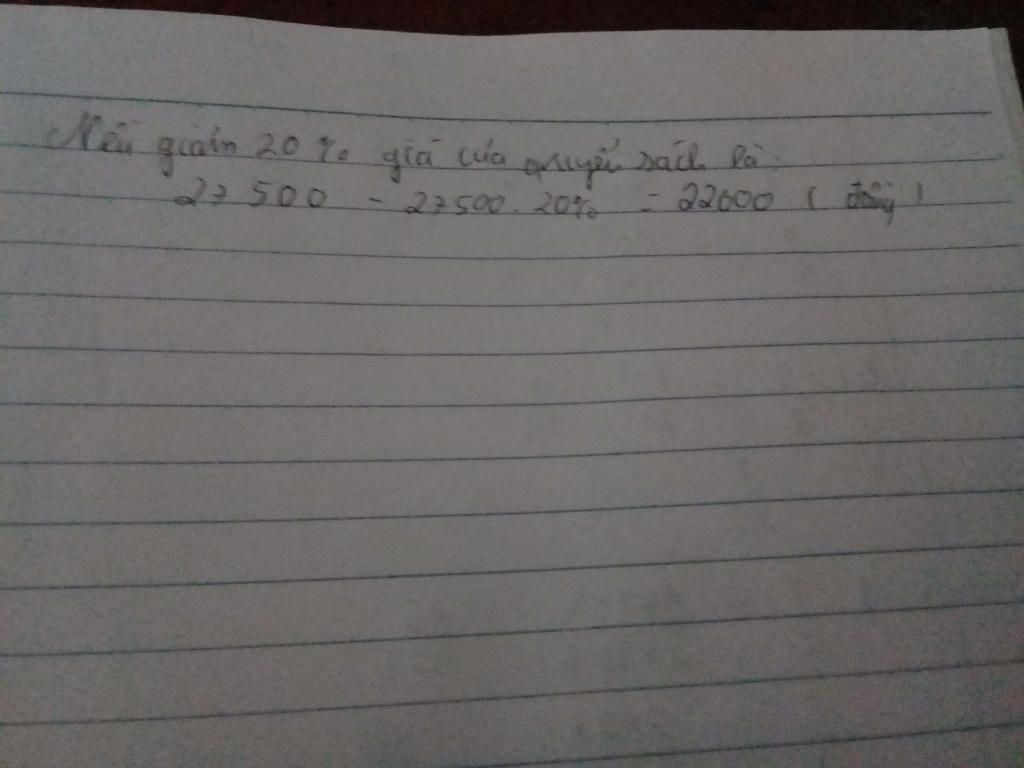 Nếu giảm 20% giá của quyển sách là:
27 500 - 27500. 20% = 22000 (đồng)